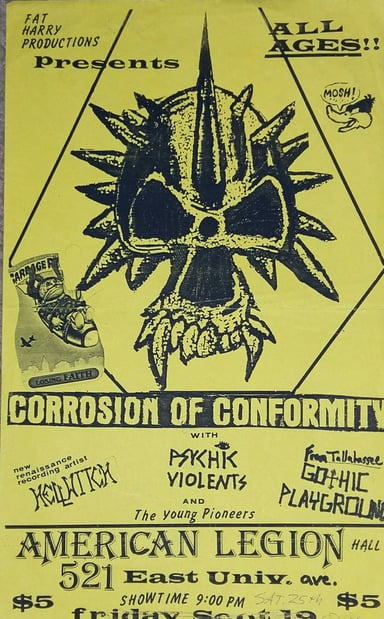 FAT
HARRY
PRODUCTIONS
Presents
ALL
AGES!!
MOSH!
GARBAGE P
LOSING FAITH
CORROSION OF CONFORMITY
WITH
PSYCHIC
VIOLENTS
AND
The Young Pioneers
new
renaissance
recording artist
HELLWITCH
from Tallahassee
GOTHIC
PLAYGROUND
AMERICAN LEGION HALL
521 East Univ. ave.
$5 SHOWTIME 9:00 PM SAT. 25th $5
friday Sept 19